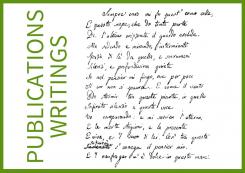 PUBLICATIONS
WRITINGS
Sempre caro mi fu quest'ermo colle,
E questa siepe, che da tanta parte
De l'ultimo orizzonte il guardo esclude.
Ma sedendo e mirando, interminato
Spazio di là da quella, e sovrumani
Silenzi, e profondissima quiete
Io nel pensier mi fingo, ove per poco
Il cor non si spaura. E come il vento
Odo stormir tra queste piante, io quello
Infinito silenzio a questa voce
Vo comparando: e mi sovvien l'eterno,
E le morte stagioni, e la presente
E viva, e 'l suon di lei. Così tra questa
s'annega il pensier mio,
E 'l naufragar m'è dolce in questo mare.